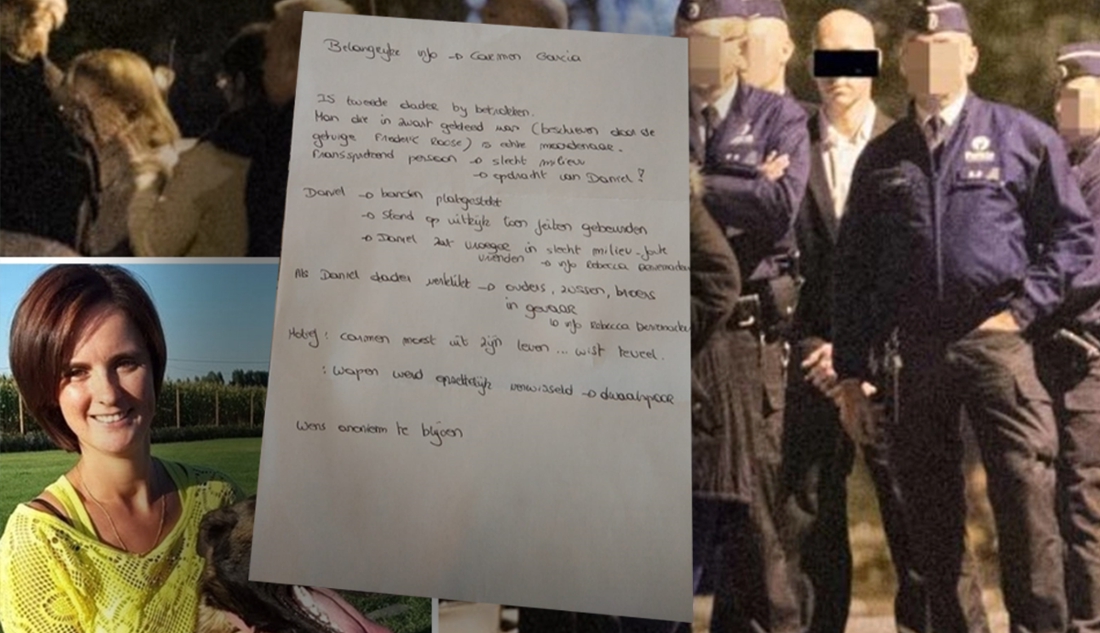 Belangrijke info → Carmen Garcia
Is tweede dader bij betrokken.
Man die in zwart gekleed was (beschreven door de
getuige Frederic Roose) is echte moordenaar.
Franssprekend persoon → slecht milieu
→ opdracht van Daniel?
Daniel → banden platgestekt
→ stond op uitkijk toen feiten gebeurden
→ Daniel zat vroeger in slecht milieu - foute
vrienden → info Rebecca
Als Daniel dader verklikt → ouders, zussen, broers
in gevaar
↳ info Rebecca
Motief: Carmen moest uit zijn leven ... wist teveel.
: wapen werd opzettelijk verwisseld → dwaalspoor
Wens anoniem te blijven